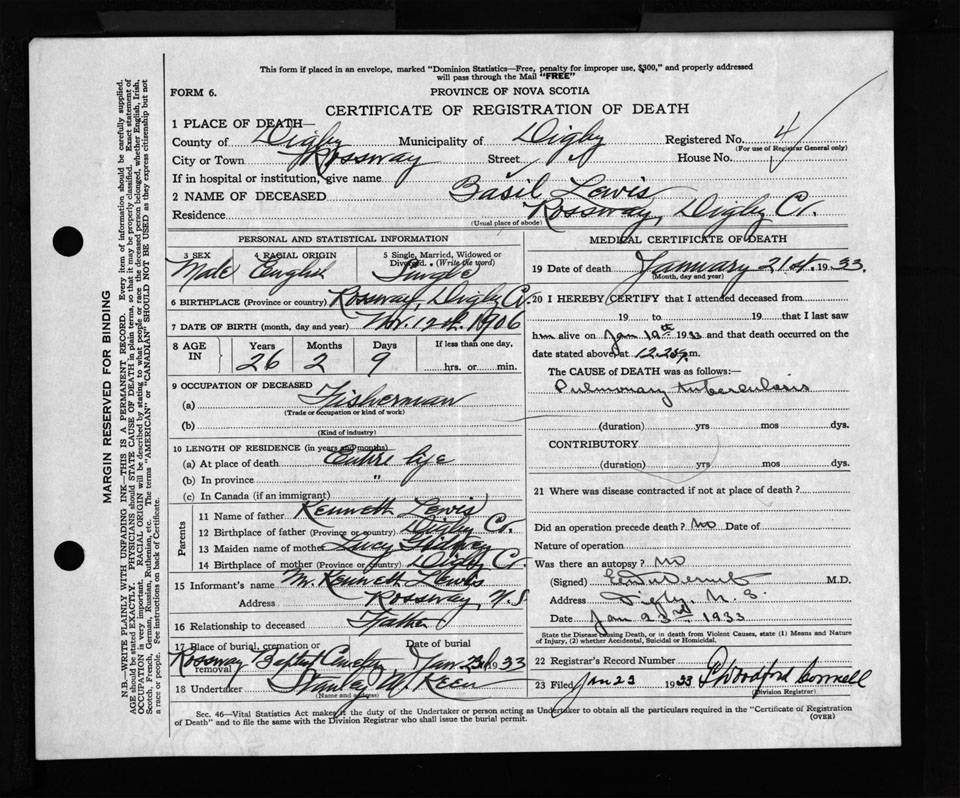 This form if placed in an envelope, marked "Dominion Statistics—Free, penalty for improper use, $300," and properly addressed
will pass through the Mail "FREE"
FORM 6.
PROVINCE OF NOVA SCOTIA
CERTIFICATE OF REGISTRATION OF DEATH
1 PLACE OF DEATH—
County of Digby Municipality of Digby Registered No. 4
(For use of Registrar General only)
City or Town Rossway Street House No.
If in hospital or institution, give name
2 NAME OF DECEASED Basil Lewis
Residence Rossway, Digby Co.
(Usual place of abode)
PERSONAL AND STATISTICAL INFORMATION
3 SEX 4 RACIAL ORIGIN 5 Single, Married, Widowed or
Divorced. (Write the word)
Male English Single
6 BIRTHPLACE (Province or country) Rossway, Digby Co.
7 DATE OF BIRTH (month, day and year) Nov. 12th 1906
8 AGE IN Years Months Days If less than one day,
26 2 9 hrs. or min.
9 OCCUPATION OF DECEASED
(a) Fisherman
(Trade or occupation or kind of work)
(b)
(Kind of industry)
10 LENGTH OF RESIDENCE (in years and months)
(a) At place of death Entire life
(b) In province "
(c) In Canada (if an immigrant)
Parents
11 Name of father Kenneth Lewis
12 Birthplace of father (Province or country) Digby Co.
13 Maiden name of mother Lucy
14 Birthplace of mother (Province or country) Digby Co.
15 Informant's name M. Kenneth Lewis
Address Rossway, N.S
16 Relationship to deceased Father
17 Place of burial, cremation or removal Date of burial
Rossway Baptist Cemetery Jan. 23 1933
18 Undertaker Stanley W. Keen
(Name and address)
MEDICAL CERTIFICATE OF DEATH
19 Date of death January 21st. 1933.
(Month, day and year)
20 I HEREBY CERTIFY that I attended deceased from
19 to 19 that I last saw
him alive on Jan 19th 1933 and that death occurred on the
date stated above, at 12.20 m.
The CAUSE of DEATH was as follows:—
Pulmonary tuberculosis
(duration) yrs mos dys.
CONTRIBUTORY
(duration) yrs mos dys.
21 Where was disease contracted if not at place of death?
Did an operation precede death? No Date of
Nature of operation
Was there an autopsy? No
(Signed) M.D.
Address Digby, N. S.
Date Jan 23rd 1933
State the Disease causing Death, or in death from Violent Causes, state (1) Means and Nature
of Injury, (2) whether Accidental, Suicidal or Homicidal.
22 Registrar's Record Number
23 Filed Jan 23 1933 P Woodford Connell
(Division Registrar)
Sec. 46—Vital Statistics Act makes it the duty of the Undertaker or person acting as Undertaker to obtain all the particulars required in the "Certificate of Registration
of Death" and to file the same with the Division Registrar who shall issue the burial permit.
(OVER)
MARGIN RESERVED FOR BINDING
N.B.—WRITE PLAINLY WITH UNFADING INK—THIS IS A PERMANENT RECORD. Every item of information should be carefully supplied.
AGE should be stated EXACTLY. PHYSICIANS should STATE CAUSE OF DEATH in plain terms, so that it may be properly classified. Exact statement of
OCCUPATION is very important. RACIAL ORIGIN will be described by stating to what people or race the deceased person belonged, whether English, Irish,
Scotch, French, German, Russian, Ruthenian, etc. The terms "AMERICAN" or "CANADIAN" SHOULD NOT BE USED as they express citizenship but not
a race or people. See instructions on back of Certificate.